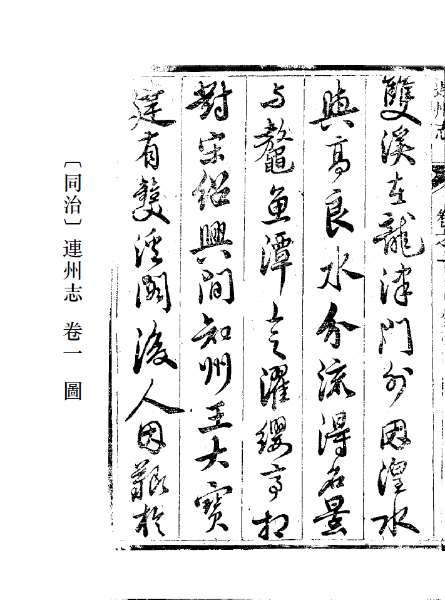 連州志
雙溪在龍津門外因湟水
與高良水分流得名景
与鰲魚潭上之濯纓亭相
對宋紹興間知州王大寶
建有雙溪閣後人因艱於
〔同治〕連州志 卷一 圖